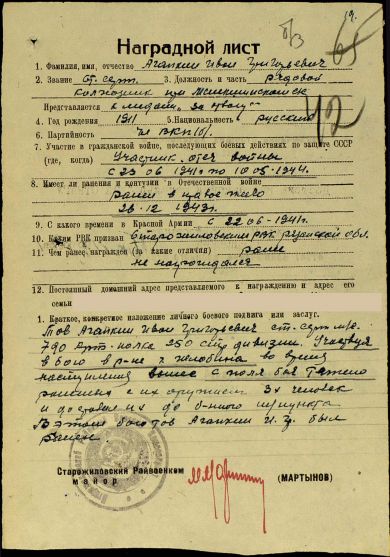 б/з
65
Наградной лист
42
1. Фамилия, имя, отчество Агапкин Иван Григорьевич
2. Звание ст. серж. 3. Должность и часть рядовой
колхозник
Представляется к медали "за отвагу"
4. Год рождения 1911 5. Национальность русский
6. Партийность чл ВКП(б)
7. Участие в гражданской войне, последующих боевых действиях по защите СССР
(где, когда) Участник отеч войны
с 23 06-1941г по 10.05-1944г.
8. Имеет ли ранения и контузии в Отечественной войне
ранен в правое
28.12 1943г.
9. С какого времени в Красной Армии с 22.06-1941г.
10. Каким РВК призван Старожиловским РВК Рязанской обл.
11. Чем ранее награжден (за какие отличия) ранее
не награждался
12. Постоянный домашний адрес представляемого к награждению и адрес его
семьи
1. Краткое, конкретное изложение личного боевого подвига или заслуг.
Тов Агапкин Иван Григорьевич ст. серж
790 Арт. полка 250 стр дивизии. Участвуя
в бою в р-не г. Жлобина во время
наступления вынес с поля боя тяжело
раненых с их оружием 3х человек
и доставил их до
В этом бою тов Агапкин И. Г. был
ранен.
Старожиловский Райвоенком
майор (МАРТЫНОВ)